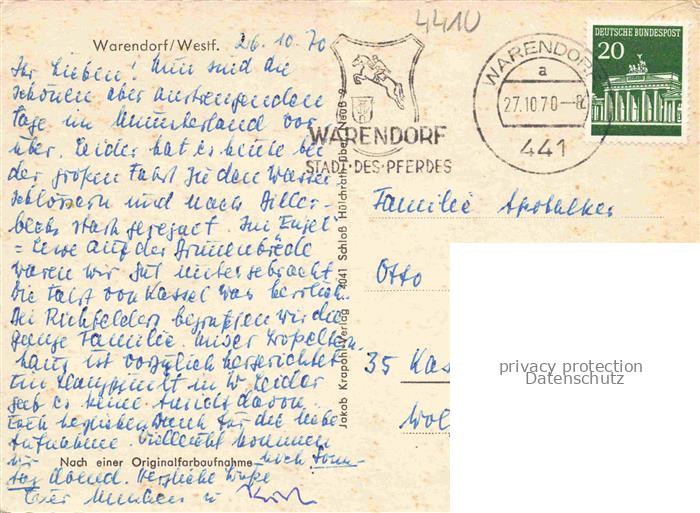 4410
Warendorf/Westf. 26.10.70
Ihr Lieben! Nun sind die
schönen aber anstrengenden
Tage im Münsterland vor-
über. Leider hat es heute bei
der großen Fahrt zu den Wasser-
schlössern und nach Biller-
becks stark geregnet. Im Engel
=
waren wir gut untergebracht.
Die Fahrt von Kassel war herrlich.
Bei Richfelders begrüßten wir die
ganze Familie. Unser
haus ist vorzüglich hergerichtet
im Hauptpunkt in W. Leider
gab es keine Ansicht davon.
Euch herzlichen Dank für die liebe
Aufnahme. Vielleicht kommen
wir noch Sonn-
tag Abend. Herzliche Grüße
Eure u
Nach einer Originalfarbaufnahme
Jakob Krapohl-Verlag 4041 Schloß Hülchrath über Neuß 2
WARENDORF
STADT·DES·PFERDES
WARENDORF
a
27.10.70-8
441
DEUTSCHE BUNDESPOST
20
Familie Apotheker
Otto
35 Kas
Wol
privacy protection
Datenschutz